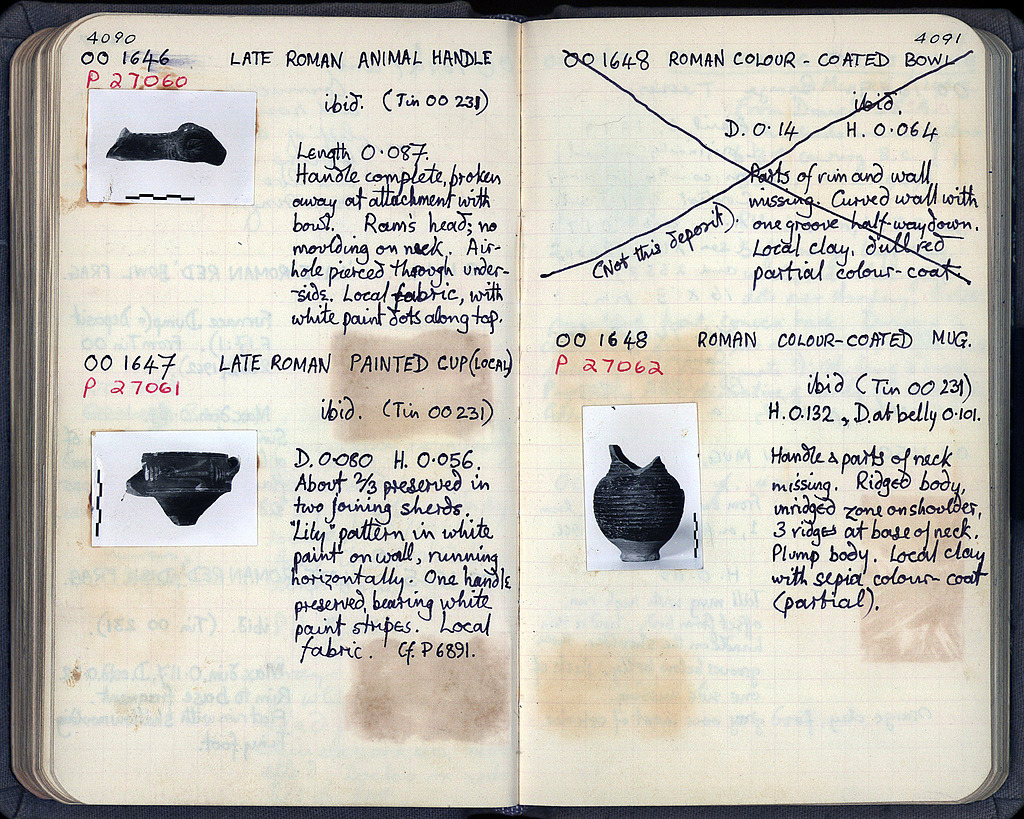 4090
OO 1646 LATE ROMAN ANIMAL HANDLE
P 27060
ibid. (Tin OO 231)
Length 0.087.
Handle complete, broken
away at attachment with
bowl. Ram's head; no
moulding on neck. Air-
hole pierced through under-
-side. Local fabric, with
white paint dots along top.
OO 1647 LATE ROMAN PAINTED CUP (LOCAL)
P 27061
ibid. (Tin OO 231)
D. 0.080 H. 0.056.
About 2/3 preserved in
two joining sherds.
"Lily" pattern in white
paint on wall, running
horizontally. One handle
preserved, bearing white
paint stripes. Local
fabric. Cf. P 6891.
4091
OO 1648 ROMAN COLOUR-COATED BOWL
ibid.
D. 0.14 H. 0.064
Parts of rim and wall
missing. Curved wall with
one groove half-way down.
Local clay, dull red
partial colour-coat.
(Not this deposit).
OO 1648 ROMAN COLOUR-COATED MUG.
P 27062
ibid (Tin OO 231)
H. 0.132, D. at belly 0.101.
Handle & parts of neck
missing. Ridged body,
unridged zone on shoulder,
3 ridges at base of neck.
Plump body. Local clay
with sepia colour-coat
(partial).